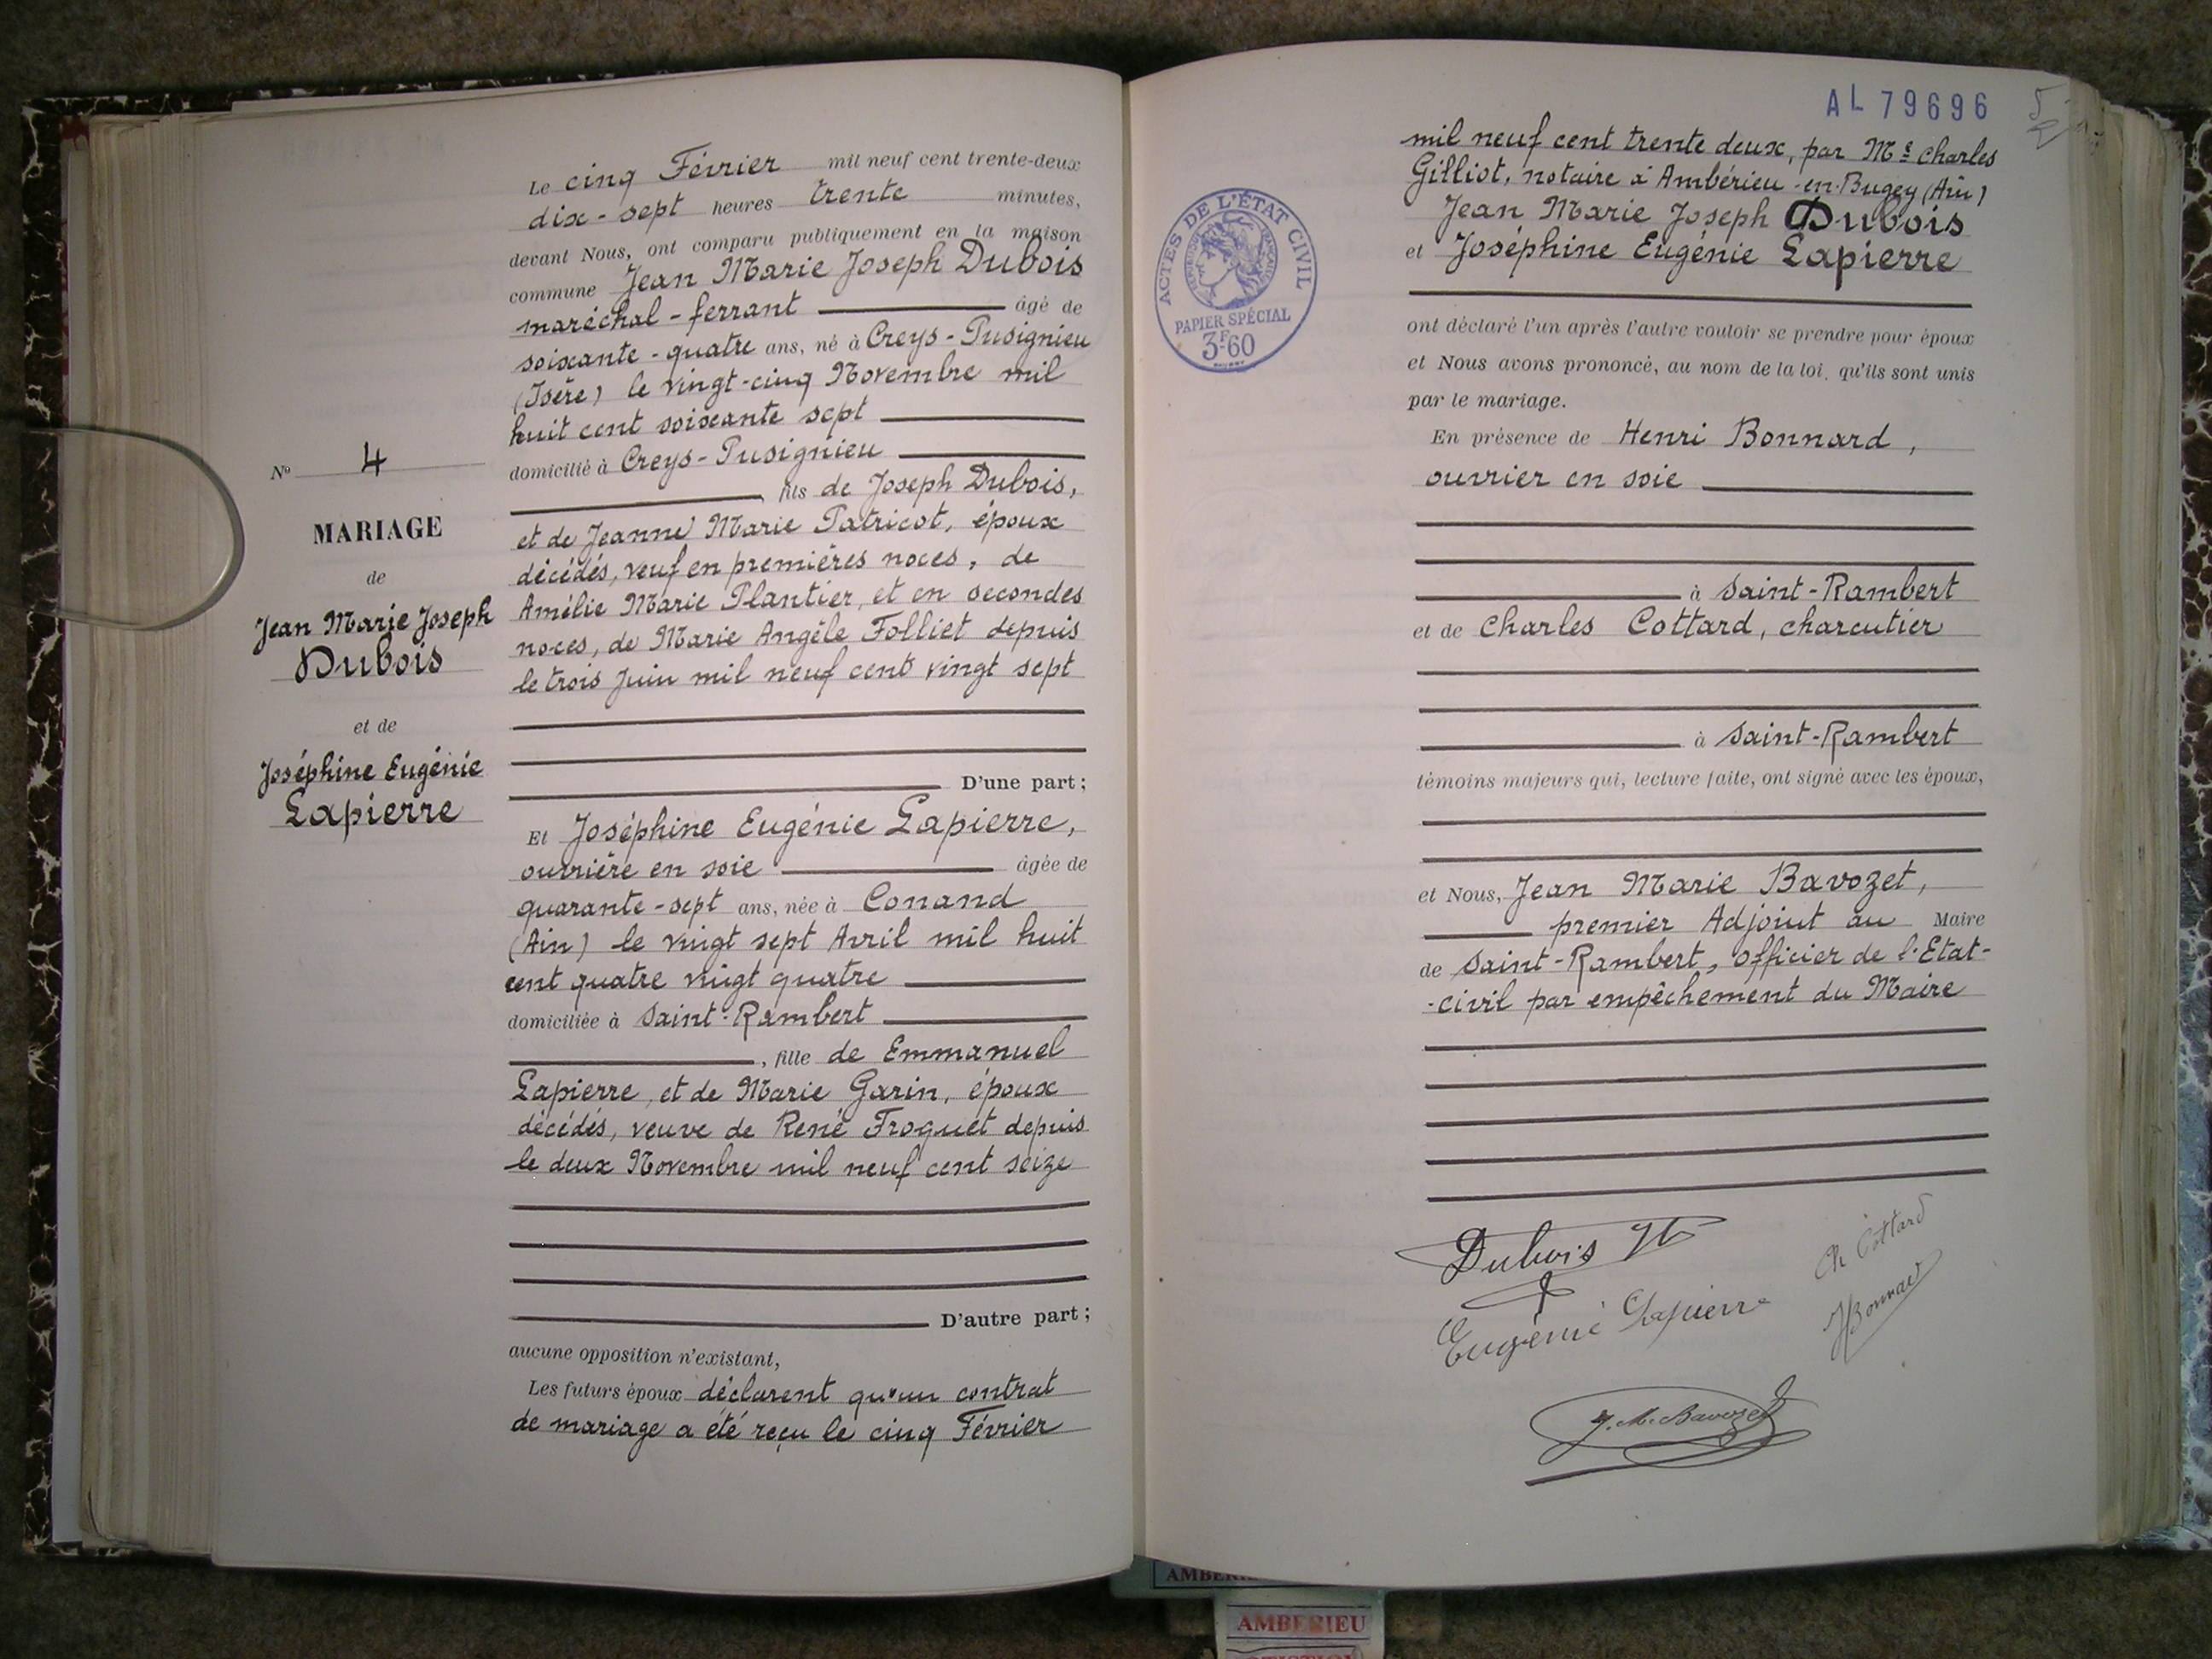 Le cinq Février mil neuf cent trente-deux
dix-sept heures trente minutes,
devant Nous, ont comparu publiquement en la maison
commune Jean Marie Joseph Dubois
maréchal-ferrant âgé de
soixante-quatre ans, né à Creys-Pusignieu
(Isère) le vingt-cinq Novembre mil
huit cent soixante sept
domicilié à Creys-Pusignieu
, fils de Joseph Dubois,
et de Jeanne Marie Patricot, époux
décédés, veuf en premières noces, de
Amélie Marie Plantier, et en secondes
noces, de Marie Angèle Folliet depuis
le trois Juin mil neuf cent vingt sept
D'une part;
N° 4
MARIAGE
de
Jean Marie Joseph
Dubois
et de
Joséphine Eugénie
Lapierre
Et Joséphine Eugénie Lapierre,
ouvrière en soie âgée de
quarante-sept ans, née à Conand
(Ain) le vingt sept Avril mil huit
cent quatre vingt quatre
domiciliée à Saint-Rambert
, fille de Emmanuel
Lapierre, et de Marie Garin, époux
décédés, veuve de René Froquet depuis
le deux Novembre mil neuf cent seize
D'autre part;
aucune opposition n'existant,
Les futurs époux déclarent qu'un contrat
de mariage a été reçu le cinq Février
AL 79696
mil neuf cent trente deux, par Me Charles
Gilliot, notaire à Ambérieu-en-Bugey (Ain)
Jean Marie Joseph Dubois
et Joséphine Eugénie Lapierre
ACTES DE L'ÉTAT CIVIL
PAPIER SPÉCIAL
3F60
ont déclaré l'un après l'autre vouloir se prendre pour époux
et Nous avons prononcé, au nom de la loi, qu'ils sont unis
par le mariage.
En présence de Henri Bonnard,
ouvrier en soie
à Saint-Rambert
et de Charles Cottard, charcutier
à Saint-Rambert
témoins majeurs qui, lecture faite, ont signé avec les époux,
et Nous, Jean Marie Bavozet,
premier Adjoint au Maire
de Saint-Rambert, Officier de l'Etat-
-civil par empêchement du Maire
Dubois
Ch Cottard
Eugénie Lapierre
HBonnard
J. M. Bavozet
AMBERIEU